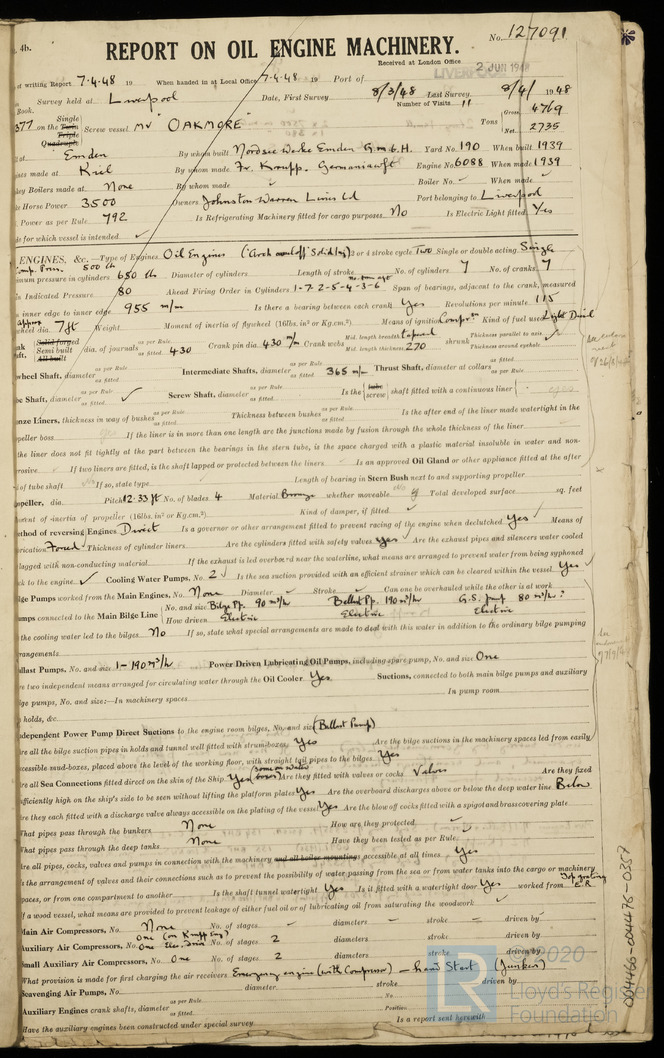 4b.
No. 127091
REPORT ON OIL ENGINE MACHINERY.
Received at London Office 2 JUN 1948
LIVERPOOL
of writing Report 7.4.48 19 When handed in at Local Office 7.4.48 19 Port of
Survey held at Liverpool Date, First Survey 8/3/48 Last Survey 8/4/ 1948
Book. Number of Visits 11
377 on the Single Twin Triple Quadruple Screw vessel MV "OAKMORE" Tons Gross 4769 Net 2735
at Emden By whom built Nordsee Werke Emden G.m.b.H. Yard No. 190 When built 1939
made at Kiel By whom made Fr. Krupp. Germaniawft Engine No. 6088 When made 1939
Boilers made at None By whom made Boiler No. When made
Horse Power 3500 Owners Johnston Warren Lines Ld Port belonging to Liverpool
Power as per Rule 792 Is Refrigerating Machinery fitted for cargo purposes No Is Electric Light fitted Yes
for which vessel is intended
ENGINES, &c. Type of Engines Oil Engines 2 or 4 stroke cycle Two Single or double acting Single
500 lb
pressure in cylinders 650 lb Diameter of cylinders Length of stroke No. of cylinders 7 No. of cranks 7
Indicated Pressure 80 Ahead Firing Order in Cylinders 1-7-2-5-4-3-6 Span of bearings, adjacent to the crank, measured
inner edge to inner edge 955 m/m Is there a bearing between each crank Yes Revolutions per minute 115
dia. 7 ft Weight Moment of inertia of flywheel (16lbs. in² or Kg.cm.²) Means of ignition Compn Kind of fuel used Light Diesel
Solid forged Semi built All built dia. of journals as per Rule as fitted 430 Crank pin dia. 430 m/m Crank webs Mid. length breadth tapered Mid. length thickness 270 shrunk Thickness parallel to axis Thickness around eyehole
Shaft, diameter as per Rule as fitted Intermediate Shafts, diameter as per Rule as fitted 365 m/m Thrust Shaft, diameter at collars as per Rule as fitted
Shaft, diameter as per Rule as fitted Screw Shaft, diameter as per Rule as fitted Is the tube screw shaft fitted with a continuous liner
Liners, thickness in way of bushes as per Rule as fitted Thickness between bushes as per Rule as fitted Is the after end of the liner made watertight in the
propeller boss If the liner is in more than one length are the junctions made by fusion through the whole thickness of the liner
the liner does not fit tightly at the part between the bearings in the stern tube, is the space charged with a plastic material insoluble in water and non-
corrosive If two liners are fitted, is the shaft lapped or protected between the liners Is an approved Oil Gland or other appliance fitted at the after
of tube shaft If so, state type Length of bearing in Stern Bush next to and supporting propeller
Propeller, dia. Pitch 12.33 ft No. of blades 4 Material Bronze whether moveable No Total developed surface sq. feet
moment of inertia of propeller (16lbs. in² or Kg.cm.²) Kind of damper, if fitted
Method of reversing Engines Direct Is a governor or other arrangement fitted to prevent racing of the engine when declutched Yes Means of
lubrication Forced Thickness of cylinder liners Are the cylinders fitted with safety valves Yes Are the exhaust pipes and silencers water cooled
lagged with non-conducting material If the exhaust is led overboard near the waterline, what means are arranged to prevent water from being syphoned
back to the engine Cooling Water Pumps, No. 2 Is the sea suction provided with an efficient strainer which can be cleared within the vessel Yes
Pumps worked from the Main Engines, No. None Diameter Stroke Can one be overhauled while the other is at work
Pumps connected to the Main Bilge Line No. and size Bilge Pp. 90 m³/h Ballast Pp. 190 m³/h G.S. pump 80 m³/h ?
How driven Electric Electric Electric
the cooling water led to the bilges No If so, state what special arrangements are made to deal with this water in addition to the ordinary bilge pumping
arrangements
Ballast Pumps, No. and size 1-190 m³/h Power Driven Lubricating Oil Pumps, including spare pump, No. and size One
two independent means arranged for circulating water through the Oil Cooler Yes Suctions, connected to both main bilge pumps and auxiliary
pumps, No. and size:—In machinery spaces In pump room
holds, &c.
Independent Power Pump Direct Suctions to the engine room bilges, No. and size (Ballast Pump)
all the bilge suction pipes in holds and tunnel well fitted with strum-boxes Yes Are the bilge suctions in the machinery spaces led from easily
accessible mud-boxes, placed above the level of the working floor, with straight tail pipes to the bilges Yes
all Sea Connections fitted direct on the skin of the Ship Yes (some on water boxes) Are they fitted with valves or cocks Valves Are they fixed
sufficiently high on the ship's side to be seen without lifting the platform plates Yes Are the overboard discharges above or below the deep water line Below
Are they each fitted with a discharge valve always accessible on the plating of the vessel Yes Are the blow off cocks fitted with a spigot and brass covering plate
What pipes pass through the bunkers None How are they protected
What pipes pass through the deep tanks None Have they been tested as per Rule
Are all pipes, cocks, valves and pumps in connection with the machinery and all boiler mountings accessible at all times Yes
Is the arrangement of valves and their connections such as to prevent the possibility of water passing from the sea or from water tanks into the cargo or machinery
spaces, or from one compartment to another Is the shaft tunnel watertight Yes Is it fitted with a watertight door Yes worked from Top grating E.R
If a wood vessel, what means are provided to prevent leakage of either fuel oil or of lubricating oil from saturating the woodwork
Main Air Compressors, No. None No. of stages diameters stroke driven by
Auxiliary Air Compressors, No. One (on Krupp Eng) One Elec. Driv No. of stages 2 diameters stroke driven by
Small Auxiliary Air Compressors, No. One No. of stages 2 diameters stroke driven by
What provision is made for first charging the air receivers Emergency engine (with Compressor) – hand Start (Junkers)
Scavenging Air Pumps, No. diameter stroke driven by
Auxiliary Engines crank shafts, diameter as per Rule as fitted No. Position
Have the auxiliary engines been constructed under special survey Is a report sent herewith
004466-004476-0357
LR
©2020
Lloyd's Register
Foundation